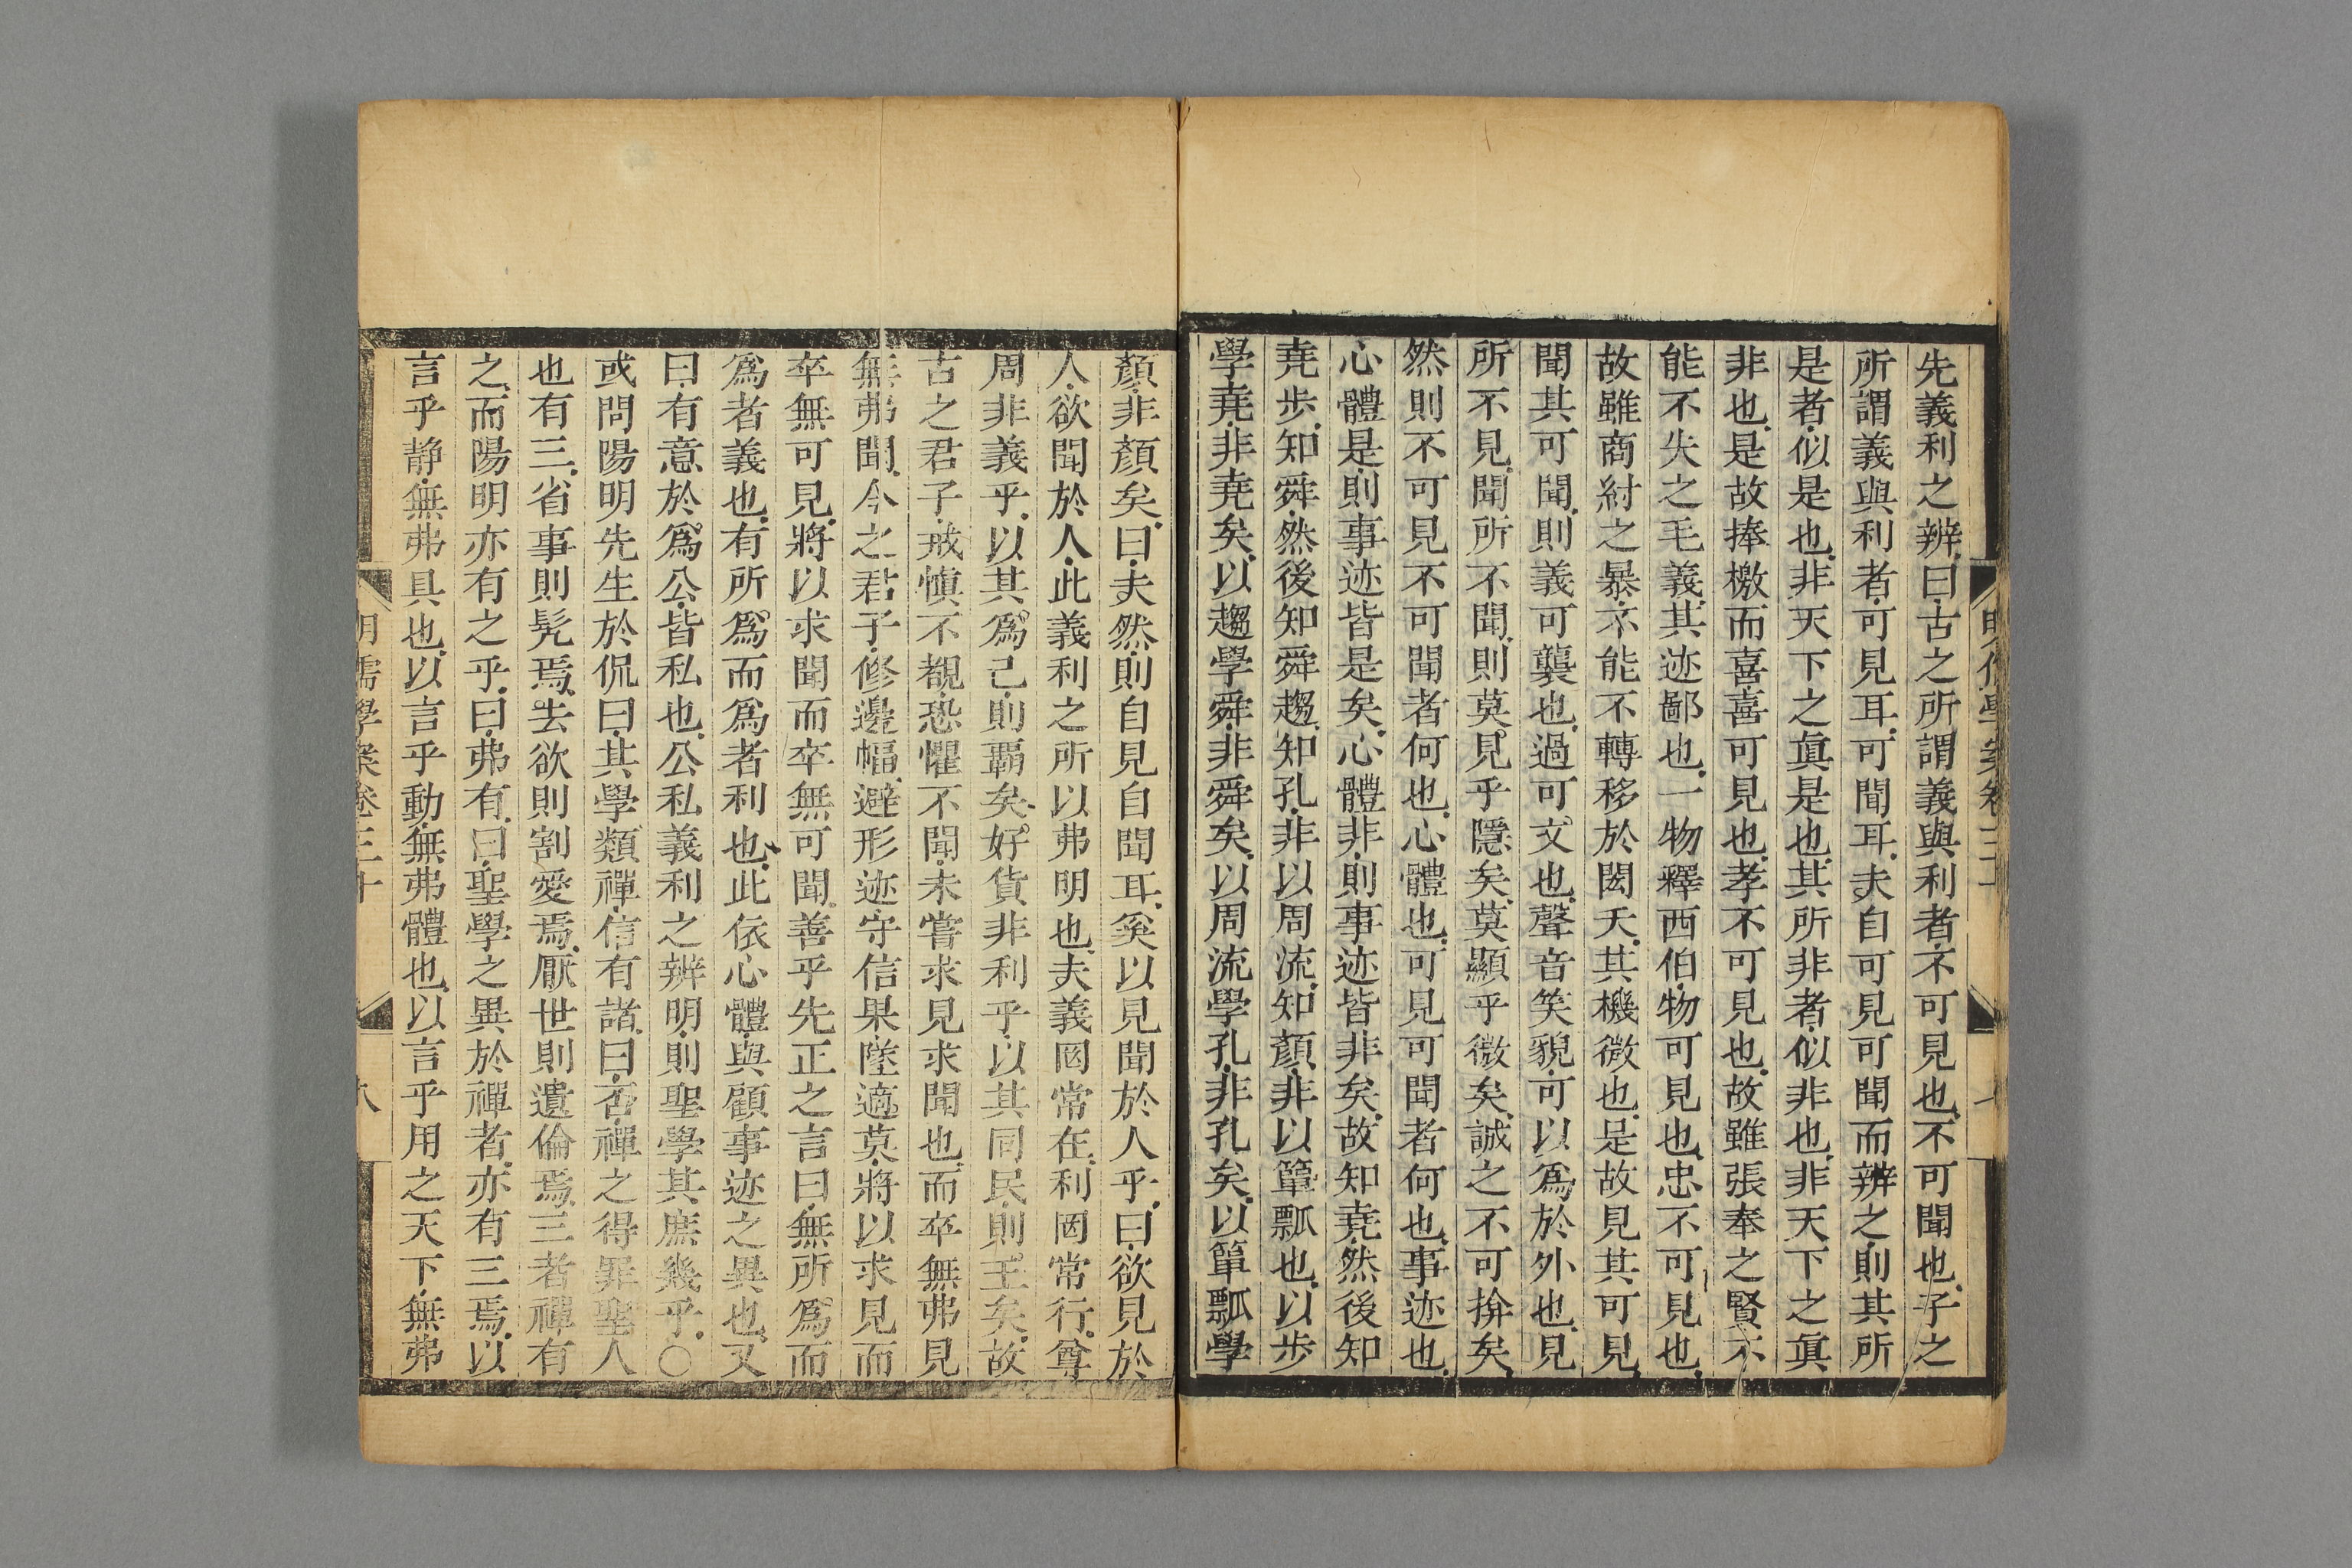 先義利之辨曰古之所謂義與利者不可見也不可聞也子之
所謂義與利者可見耳可聞耳夫自可見可聞而辨之則其所
是者似是也非天下之眞是也其所非者似非也非天下之眞
非也是故捧檄而喜喜可見也孝不可見也故雖張奉之賢不
能不失之毛義其迹鄙也一物釋西伯物可見也忠不可見也
故雖商紂之暴不能不轉移於閎夭其機微也是故見其可見
聞其可聞則義可襲也過可文也聲音笑貌可以爲於外也見
所不見聞所不聞則莫見乎隱矣莫顯乎微矣誠之不可揜矣
然則不可見不可聞者何也心體也可見可聞者何也事迹也
心體是則事迹皆是矣心體非則事迹皆非矣故知堯然後知
堯步知舜然後知舜趨知孔非以周流知顏非以簞瓢也以步
學堯非堯矣以趨學舜非舜矣以周流學孔非孔矣以簞瓢學
顏非顏矣曰夫然則自見自聞耳奚以見聞於人乎曰欲見於
人欲聞於人此義利之所以弗明也夫義罔常在利罔常行尊
周非義乎以其爲己則覇矣好貨非利乎以其同民則王矣故
古之君子戒愼不覩恐懼不聞未嘗求見求聞也而卒無弗見
無弗聞今之君子修邊幅避形迹守信果墜適莫將以求見而
卒無可見將以求聞而卒無可聞善乎先正之言曰無所爲而
爲者義也有所爲而爲者利也此依心體與顧事迹之異也又
曰有意於爲公皆私也公私義利之辨明則聖學其庶幾乎〇
或問陽明先生於侃曰其學類禪信有諸曰否禪之得罪聖人
也有三省事則髡焉去欲則割愛焉厭世則遺倫焉三者禪有
之而陽明亦有之乎曰弗有曰聖學之異於禪者亦有三焉以
言乎靜無弗具也以言乎動無弗體也以言乎用之天下無弗
明儒學案卷三十